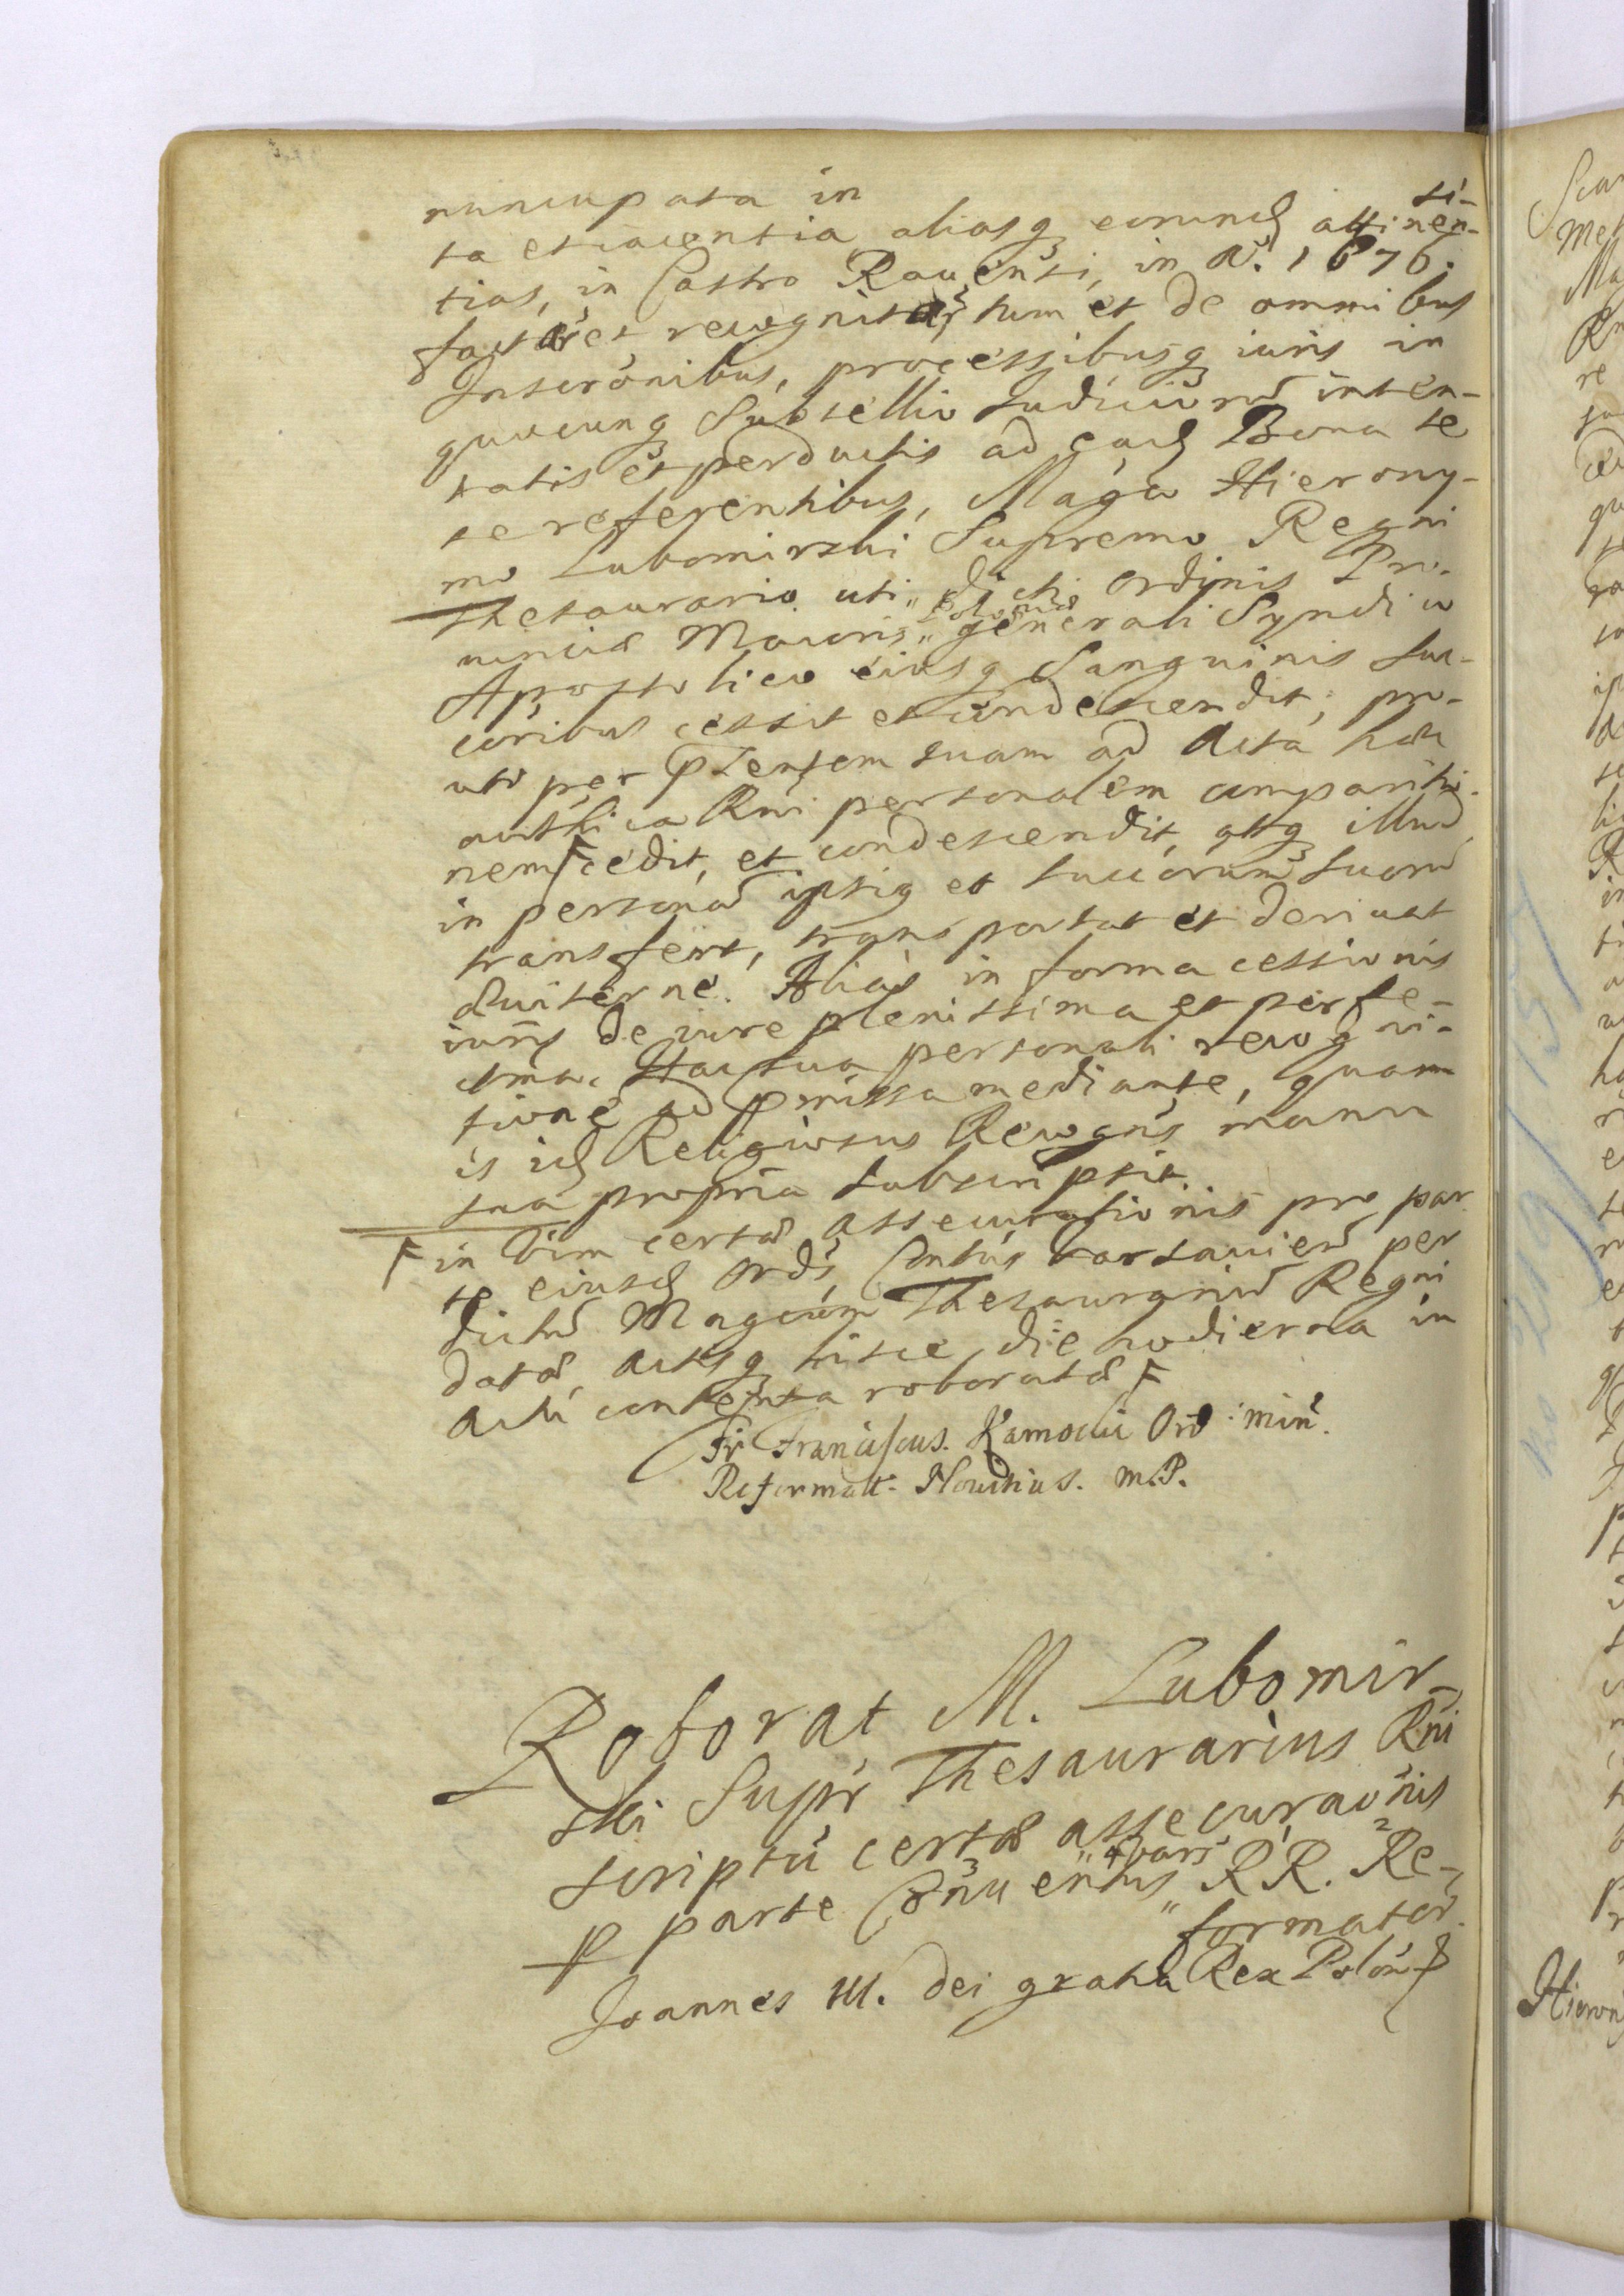 nuncupata in si-
ta et iacentia aliasq eorund attinen-
tias, in Castro Rauensi, in A. 1676.
factar et recognitar, tum et de omnibus
Inscrōnibus, processibusq iuris in
quocunq Subsellio Judiciorū inten-
tatis et perductis ad eād Bona se
se referentibus, Magco Hierony-
mo Lubomirski Supremo Regni
Thesaurario uti dicti Ordinis Pro-
uinciæ Maioris Poloniæ generali Syndico
Apostolico eiusq Sanguinis suc-
coribus cessit et condescendit; pro-
uti per pntem suam ad Acta hæc
Rni personalem compariti-
nem Ͱ cedit, et condescendit, atq illud
in personā ipsiq et succōrum suorū
transfert, transportat et deriuat
Quiterne. Alias in forma cessionis
iuris de iure plenissima et perfe-
ctma. Hac sua personali recogni-
tione ad pmissa mediante, quam
is id Religiosus Recogns manu
sua propria subscripsit
Ͱ in Vim certæ assecurationis pro par
te eiusd Ordis Contus varsauien per
dictū Magcum Thesaurariū Regni
datæ, actisq hisce die hodierna in
Acti contenta roboratæ Ͱ
Fr Franciscus. Kamocki Ord: min.
Reformatt. Nouitius. m.P.
Roborat M. Lubomir-
ski Supr Thesaurarius Rni
scriptū certæ assecuraōnis
p parte Conuentus Vars RR. Re-
formator
Joannes III. Dei gratia Rex Polon